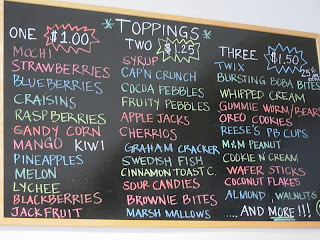 *TOPPINGS*
ONE $1.00
MOCHI
STRAWBERRIES
BLUEBERRIES
CRAISINS
RASPBERRIES
CANDY CORN
MANGO KIWI
PINEAPPLES
MELON
LYCHEE
BLACKBERRIES
JACKFRUIT
TWO $1.25
SYRUP
CAP'N CRUNCH
COCOA PEBBLES
FRUITY PEBBLES
APPLE JACKS
CHERRIOS
GRAHAM CRACKER
SWEDISH FISH
CINNAMON TOAST C.
SOUR CANDIES
BROWNIE BITES
MARSH MALLOWS
THREE $1.50
TWIX
BURSTING BOBA BITES
WHIPPED CREAM
GUMMIE WORM/BEARS
OREO COOKIES
REESE'S PB CUPS
M&M PEANUT
COOKIE N' CREAM
WAFER STICKS
COCONUT FLAKES
ALMOND, WALNUTS
.... AND MORE!!!